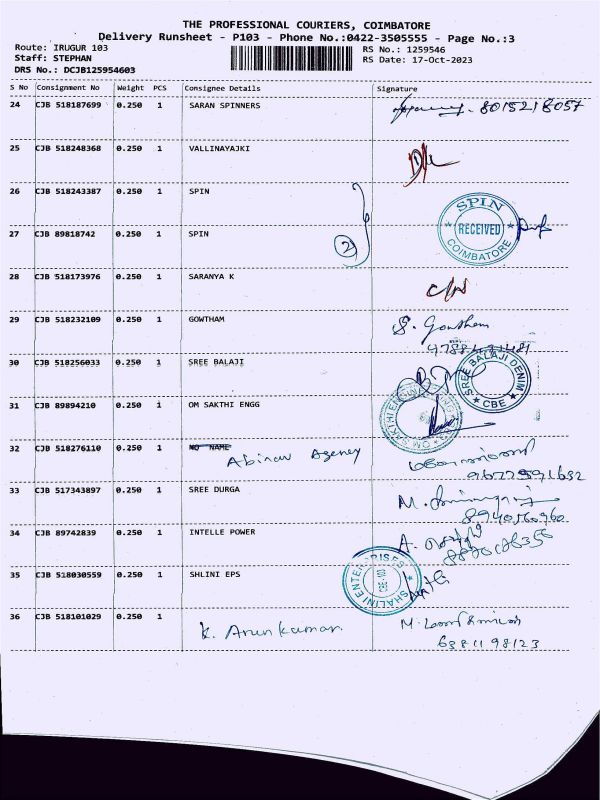 THE PROFESSIONAL COURIERS, COIMBATORE
Delivery Runsheet - P103 - Phone No.:0422-3505555 - Page No.:3
Route: IRUGUR 103 RS No.: 1259546
Staff: STEPHAN RS Date: 17-Oct-2023
DRS No.: DCJB125954603
S No Consignment No Weight PCS Consignee Details Signature
24 CJB 518187699 0.250 1 SARAN SPINNERS 8015218057
25 CJB 518248368 0.250 1 VALLINAYAJKI
26 CJB 518243387 0.250 1 SPIN
SPIN RECEIVED COIMBATORE
27 CJB 89818742 0.250 1 SPIN 2
28 CJB 518173976 0.250 1 SARANYA K
29 CJB 518232109 0.250 1 GOWTHAM S. Gowtham
30 CJB 518256033 0.250 1 SREE BALAJI
SREE BALAJI DENIM CBE
31 CJB 89894210 0.250 1 OM SAKTHI ENGG
OM SAKTHI
32 CJB 518276110 0.250 1 NO NAME Abinav Agency
9677591632
33 CJB 517343897 0.250 1 SREE DURGA M.
8940560960
34 CJB 89742839 0.250 1 INTELLE POWER A.
35 CJB 518030559 0.250 1 SHLINI EPS
SHALINI ENTERPRISES CBE-103
36 CJB 518101029 0.250 1 K. Arunkumar M.
6381198123